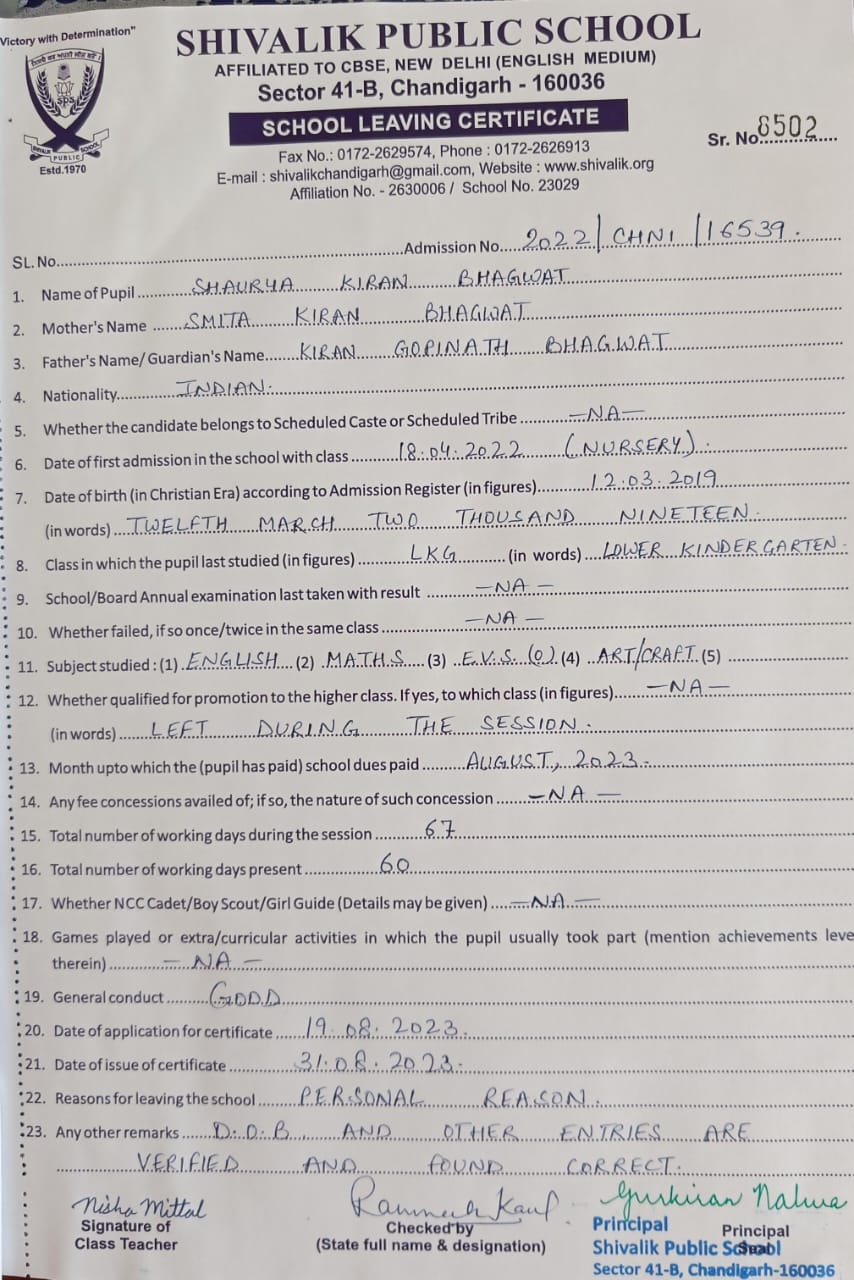 Victory with Determination"
SHIVALIK PUBLIC SCHOOL
AFFILIATED TO CBSE, NEW DELHI (ENGLISH MEDIUM)
Sector 41-B, Chandigarh - 160036
SCHOOL LEAVING CERTIFICATE
Sr. No. 8502
SPS
SHIVALIK PUBLIC SCHOOL
Estd.1970
Fax No.: 0172-2629574, Phone : 0172-2626913
E-mail : shivalikchandigarh@gmail.com, Website : www.shivalik.org
Affiliation No. - 2630006 / School No. 23029
SL. No. Admission No. 2022/CHNI/16539.
1. Name of Pupil SHAURYA KIRAN BHAGWAT
2. Mother's Name SMITA KIRAN BHAGWAT
3. Father's Name/ Guardian's Name KIRAN GOPINATH BHAGWAT
4. Nationality INDIAN.
5. Whether the candidate belongs to Scheduled Caste or Scheduled Tribe —NA—
6. Date of first admission in the school with class 18.04.2022 (NURSERY).
7. Date of birth (in Christian Era) according to Admission Register (in figures) 12.03.2019
(in words) TWELFTH MARCH TWO THOUSAND NINETEEN.
8. Class in which the pupil last studied (in figures) LKG (in words) LOWER KINDERGARTEN.
9. School/Board Annual examination last taken with result —NA—
10. Whether failed, if so once/twice in the same class —NA—
11. Subject studied : (1) ENGLISH (2) MATHS (3) E.V.S. (O) (4) ART/CRAFT (5)
12. Whether qualified for promotion to the higher class. If yes, to which class (in figures) —NA—
(in words) LEFT DURING THE SESSION.
13. Month upto which the (pupil has paid) school dues paid AUGUST, 2023.
14. Any fee concessions availed of; if so, the nature of such concession —NA—
15. Total number of working days during the session 67
16. Total number of working days present 60
17. Whether NCC Cadet/Boy Scout/Girl Guide (Details may be given) —NA—
18. Games played or extra/curricular activities in which the pupil usually took part (mention achievements leve
therein) —NA—
19. General conduct GOOD
20. Date of application for certificate 19.08.2023.
21. Date of issue of certificate 31.08.2023.
22. Reasons for leaving the school PERSONAL REASON.
23. Any other remarks D.O.B AND OTHER ENTRIES ARE
VERIFIED AND FOUND CORRECT.
Nisha Mittal
Signature of
Class Teacher
Kaur
Checked by
(State full name & designation)
Gurkiran Nalwa
Principal
Principal
Shivalik Public School
Seal
Sector 41-B, Chandigarh-160036